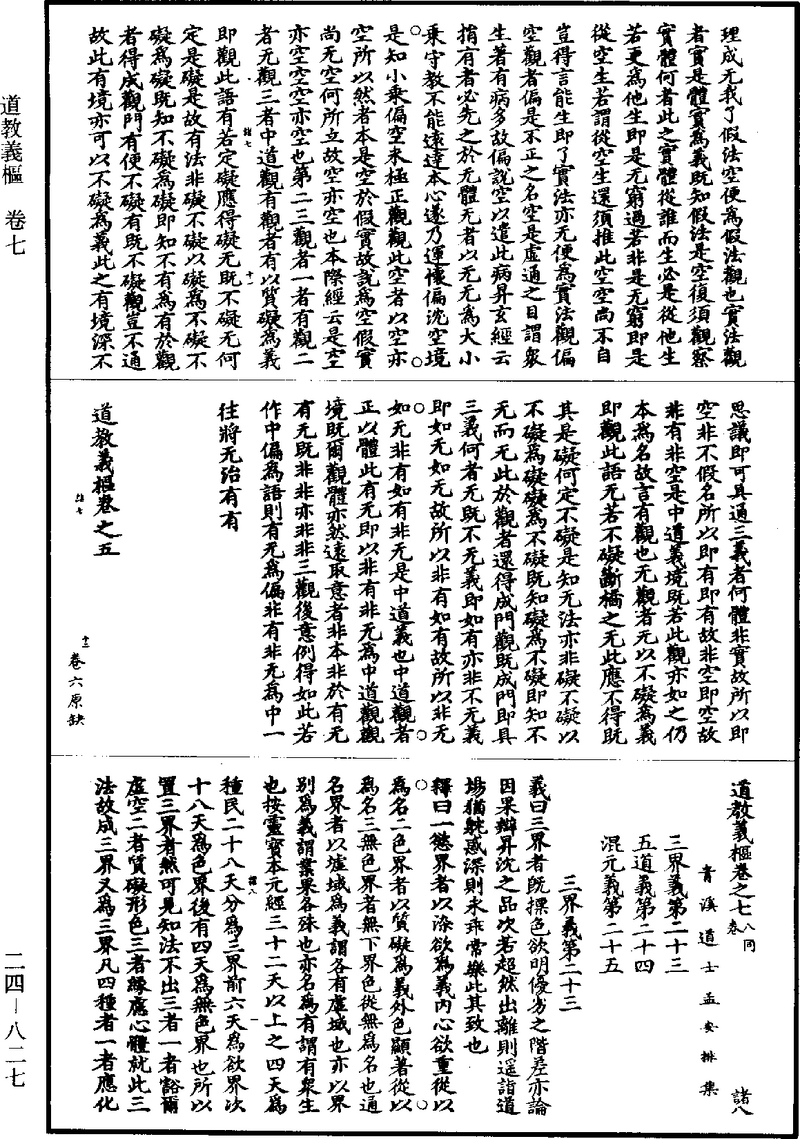 道教義樞 卷七
二四—八二七
理成无我了假法空便為假法觀也實法觀
者實是體實為義既知假法是空復須觀察
實體何者此之實體從誰而生必是從他生
若更為他生即是无窮過若非是无窮即是
從空生若謂從空生還須推此空空尚不自
豈得言能生即了實法亦无便為實法觀偏
空觀者偏是不正之名空是虛通之目謂衆
生著有病多故偏說空以遣此病昇玄經云
捐有者必先之於无體无者以无无為大小
乘守教不能遠達本心遂乃運懷偏沈空境
是知小乘偏空未極正觀觀此空者以空亦
空所以然者本是空於假實故說為空假實
尚无空何所立故空亦空也本際經云是空
亦空空空亦空也第二三觀者一者有觀二
者无觀三者中道觀有觀者有以質礙為義
諸七
十一
即觀此語有若定礙應得礙无既不礙无何
定是礙是故有法非礙不礙以礙為不礙不
礙為礙既知不礙為礙即知不有為有於觀
者得成觀門有便不礙有既不礙觀豈不通
故此有境亦可以不礙為義此之有境深不
思議即可具通三義者何體非實故所以即
空非不假名所以即有即有故非空即空故
非有非空是中道義境既若此觀亦如之仍
本為名故言有觀也无觀者无以不礙為義
即觀此語无若不礙斷橋之无此應不得既
其是礙何定不礙是知无法亦非礙不礙以
不礙為礙礙為不礙既知礙為不礙即知不
无而无此於觀者還得成門觀既成門即具
三義何者无既不无義即如有亦非不无義
即如无如无故所以非有如有故所以非无
如无非有如有非无是中道義也中道觀者
正以體此有无即以非有非无為中道觀觀
境既爾觀體亦然遠取意者非本非於有无
有无既非非亦非非三觀後意例得如此若
作中偏為語則有无為偏非有非无為中一
往將无治有有
道教義樞卷之五
諸七
十二
卷六原缺
道教義樞卷之七
八同卷
諸八
青溪道士孟安排集
三界義第二十三
五道義第二十四
混元義第二十五
三界義第二十三
義曰三界者既摽色欲明優劣之階差亦論
因果辯昇沈之品次若超然出離則遥詣道
場猶躭惑深則永乖常樂此其致也
釋曰一慾界者以染欲為義內心欲重從以
為名二色界者以質礙為義外色顯著從以
為名三無色界者無下界色從無為名也通
名界者以墟域為義謂各有虛域也亦以界
別為義謂業果各殊也亦名為有謂有衆生
也按靈寶本元經三十二天以上之四天為
諸八
一
種民二十八天分為三界前六天為欲界次
十八天為色界後有四天為無色界也所以
置三界者然可見知法不出三者一者豁爾
虛空二者質礙形色三者緣慮心體就此三
法故成三界又為三界凡四種者一者應化